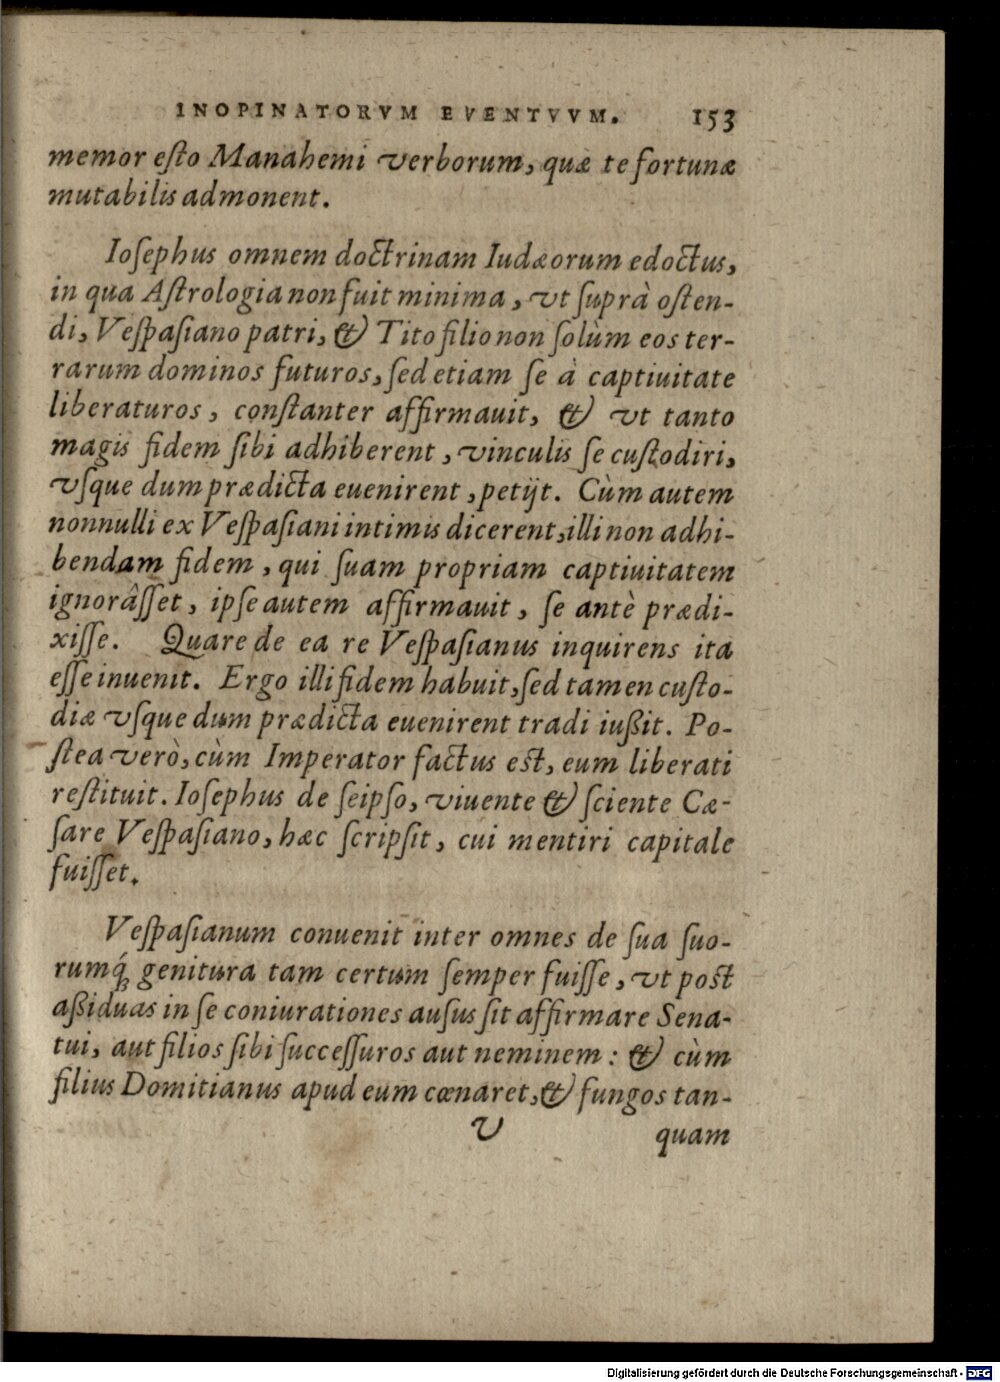 INOPINATORVM EVENTVVM. 153
memor eſto Manahemi verborum, quæ te fortunæ
mutabilis admonent.
Ioſephus omnem doctrinam Iudæorum edoctus,
in qua Aſtrologia non fuit minima, vt ſuprà oſten-
di, Veſpaſiano patri, & Tito filio non ſolùm eos ter-
rarum dominos futuros, ſed etiam ſe à captiuitate
liberaturos, conſtanter affirmauit, & vt tanto
magis fidem ſibi adhiberent, vinculis ſe cuſtodiri,
vſque dum prædicta euenirent, petijt. Cùm autem
nonnulli ex Veſpaſiani intimis dicerent, illi non adhi-
bendam fidem, qui ſuam propriam captiuitatem
ignorâſſet, ipſe autem affirmauit, ſe antè prædi-
xiſſe. Quare de ea re Veſpaſianus inquirens ita
eſſe inuenit. Ergo illi fidem habuit, ſed tamen cuſto-
diæ vſque dum prædicta euenirent tradi iußit. Po-
ſtea verò, cùm Imperator factus eſt, eum liberati
reſtituit. Ioſephus de ſeipſo, viuente & ſciente Cæ-
ſare Veſpaſiano, hæc ſcripſit, cui mentiri capitale
fuiſſet.
Veſpaſianum conuenit inter omnes de ſua ſuo-
rumq́ꝫ genitura tam certum ſemper fuiſſe, vt poſt
aßiduas in ſe coniurationes auſus ſit affirmare Sena-
tui, aut filios ſibi ſucceſſuros aut neminem: & cùm
filius Domitianus apud eum cœnaret, & fungos tan-
V quam
Digitalisierung gefördert durch die Deutsche Forschungsgemeinschaft - DFG